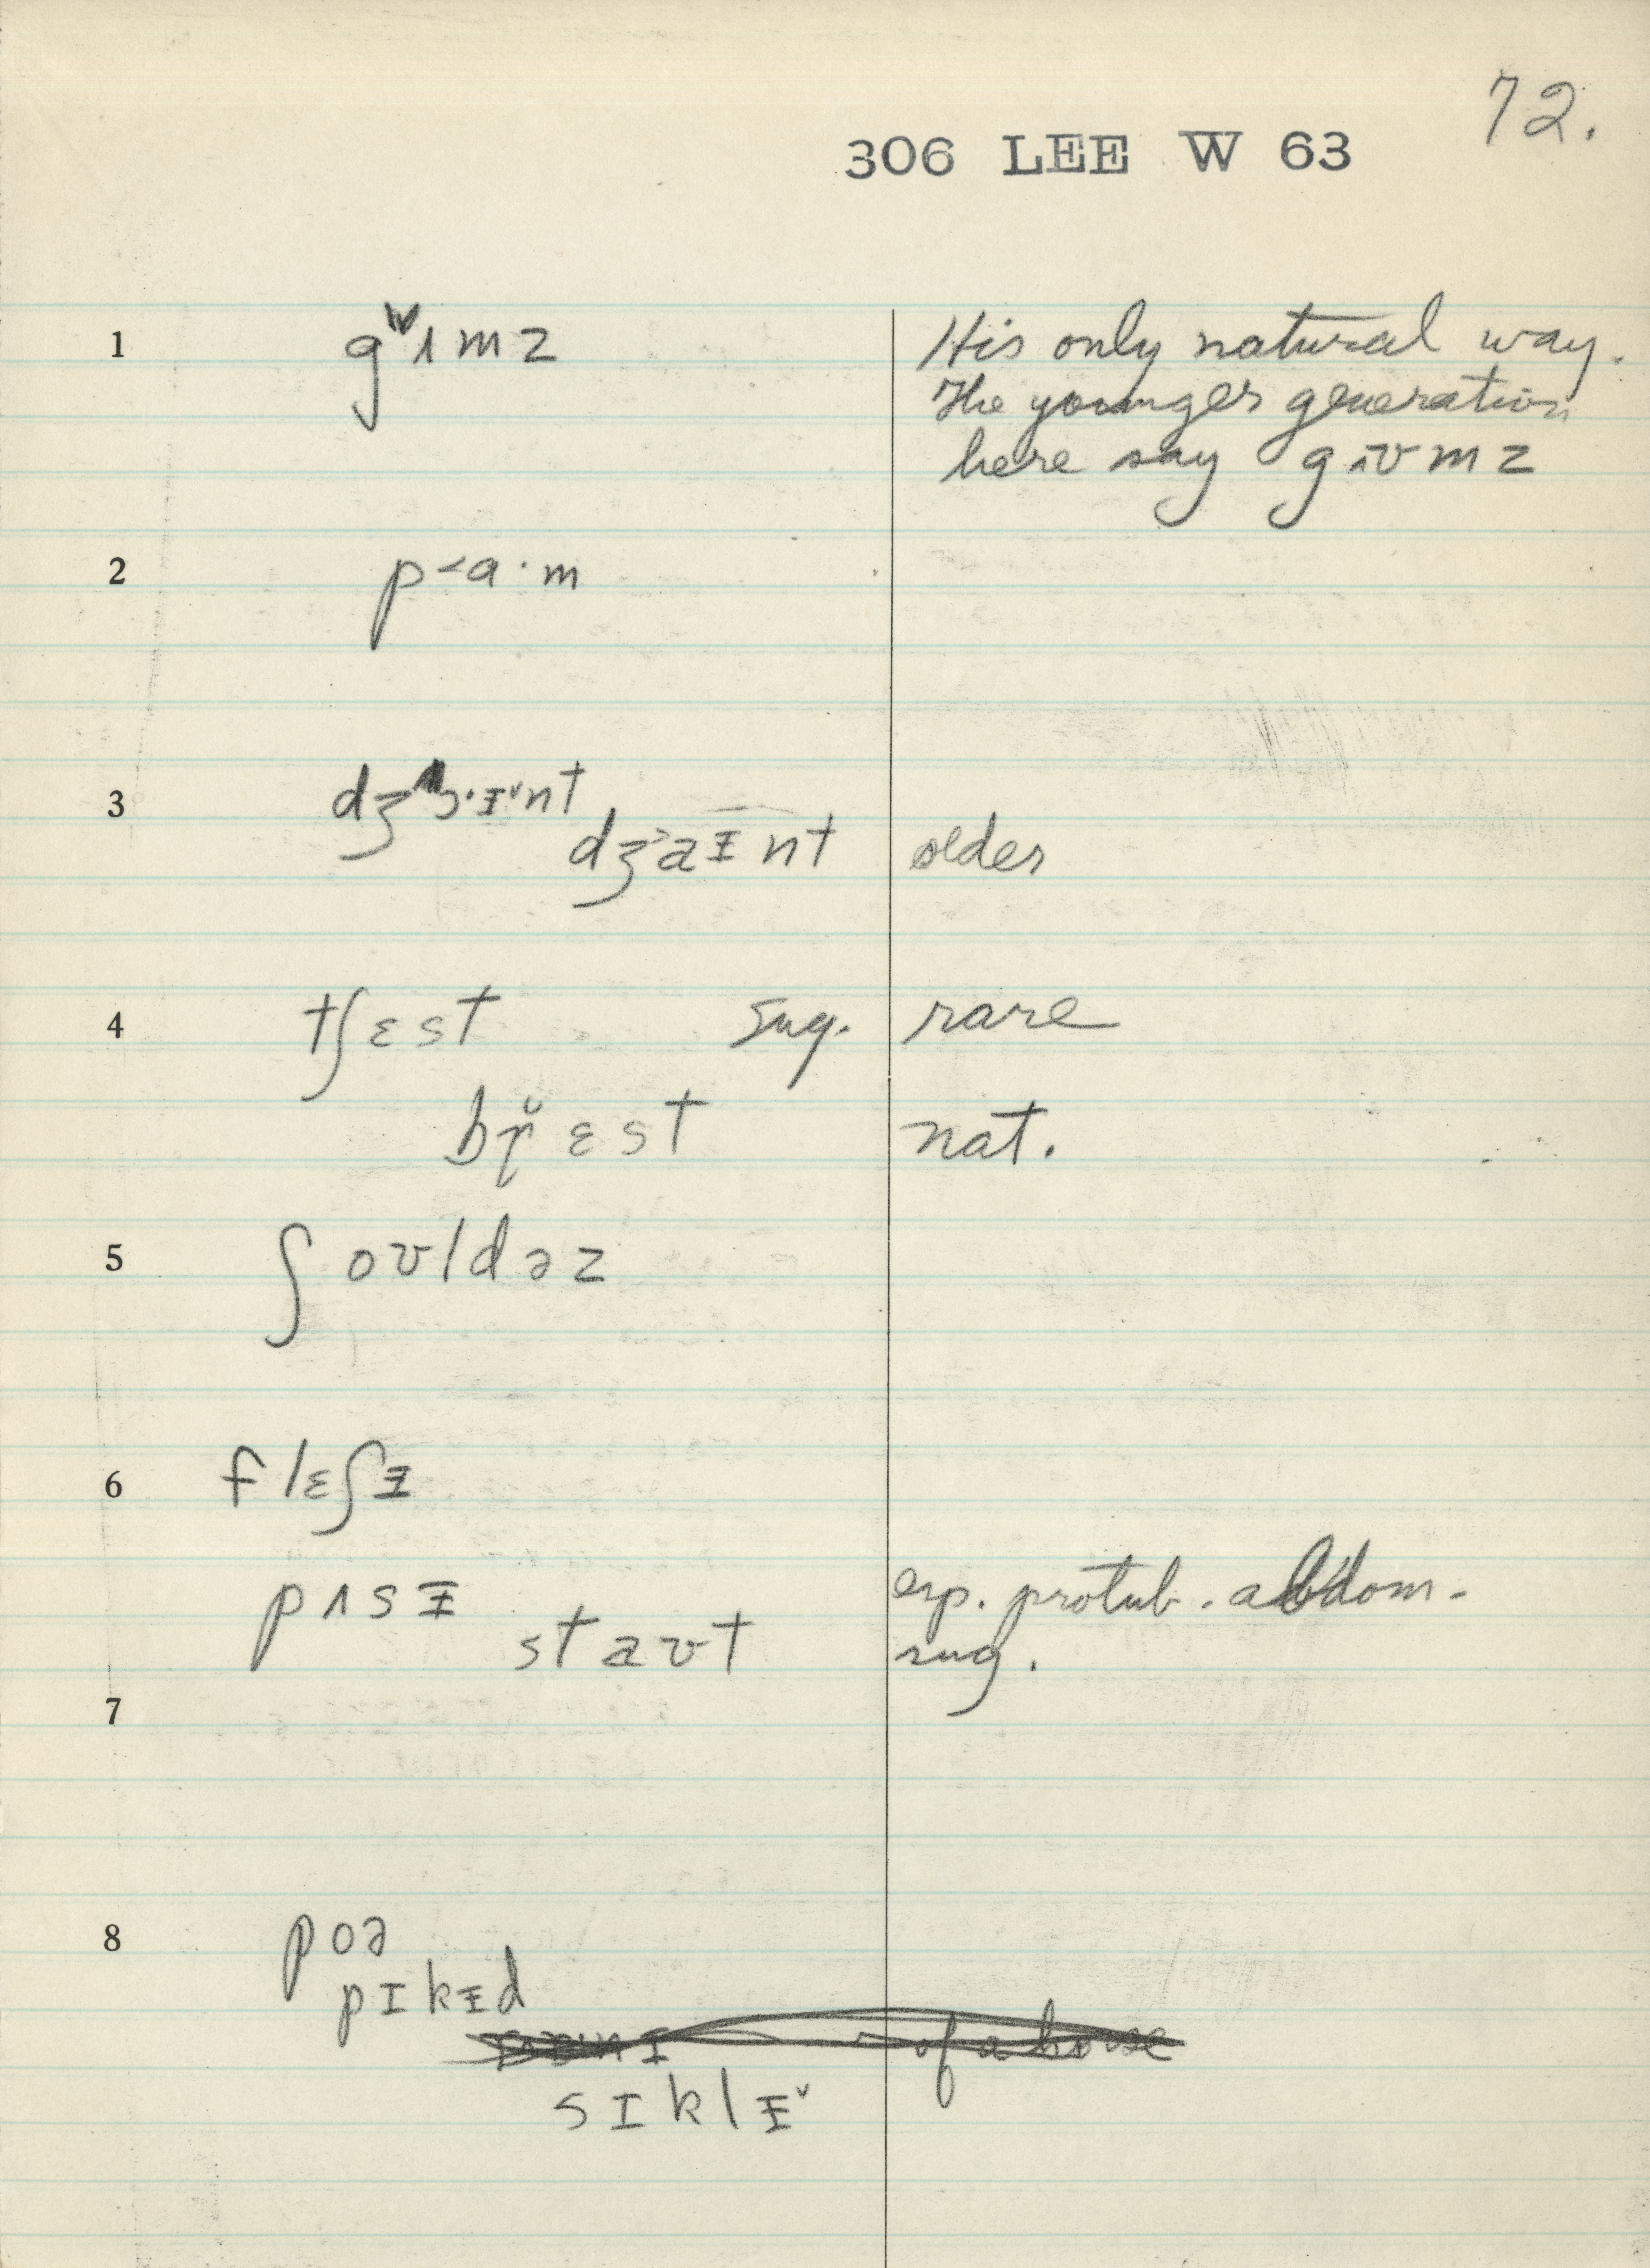 72.
306 LEE W 63
1 gʌmz His only natural way.
The younger generation
here say gɪʊmz
2 p<ɑ·m
3 dʒɔ·ᵻ˅nt
dʒ>aᵻnt older
4 tʃɛst sug. rare
bɹ̆ɛst nat.
5 ʃoʊldəz
6 flɛʃᵻ
pʌsᵻ esp. protub. abdom.
staʊt sug.
7
8 poə
pɪkᵻd
of a horse
sɪklᵻ˅